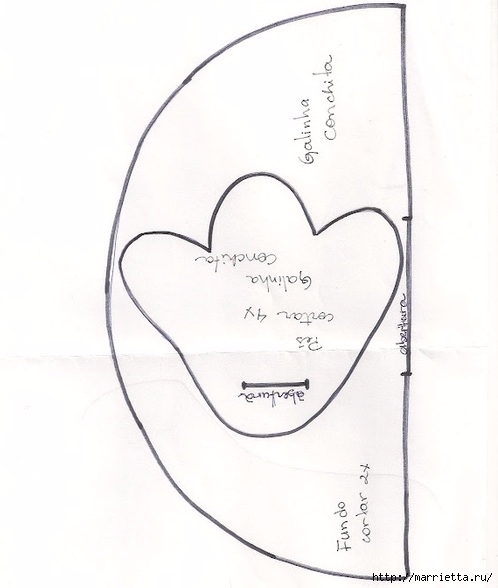 Galinha
Conchita
Galinha
Conchita
Pés
cortar 4x
abertura
abertura
Fundo
cortar 2x
http://marrietta.ru/